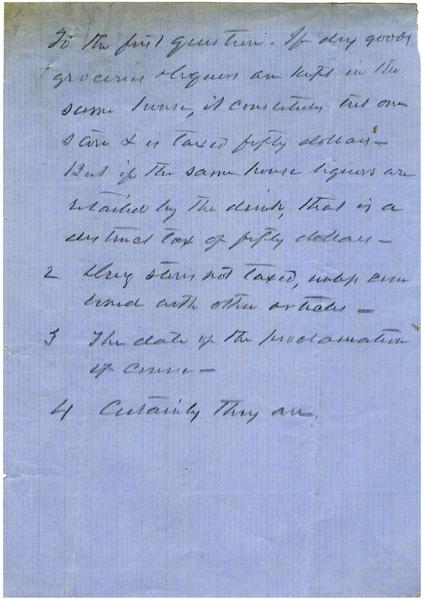 To the first question. If dry goods
groceries & liquors are kept in the
same house, it constitutes but one
store & is taxed fifty dollars –
But if the same house liquors are
retailed by the drink, that is a
distinct tax of fifty dollars –
2 Drug stores not taxed, unless com
bined with other articles –
3 The date of the proclamation
of course –
4 Certainly they are.